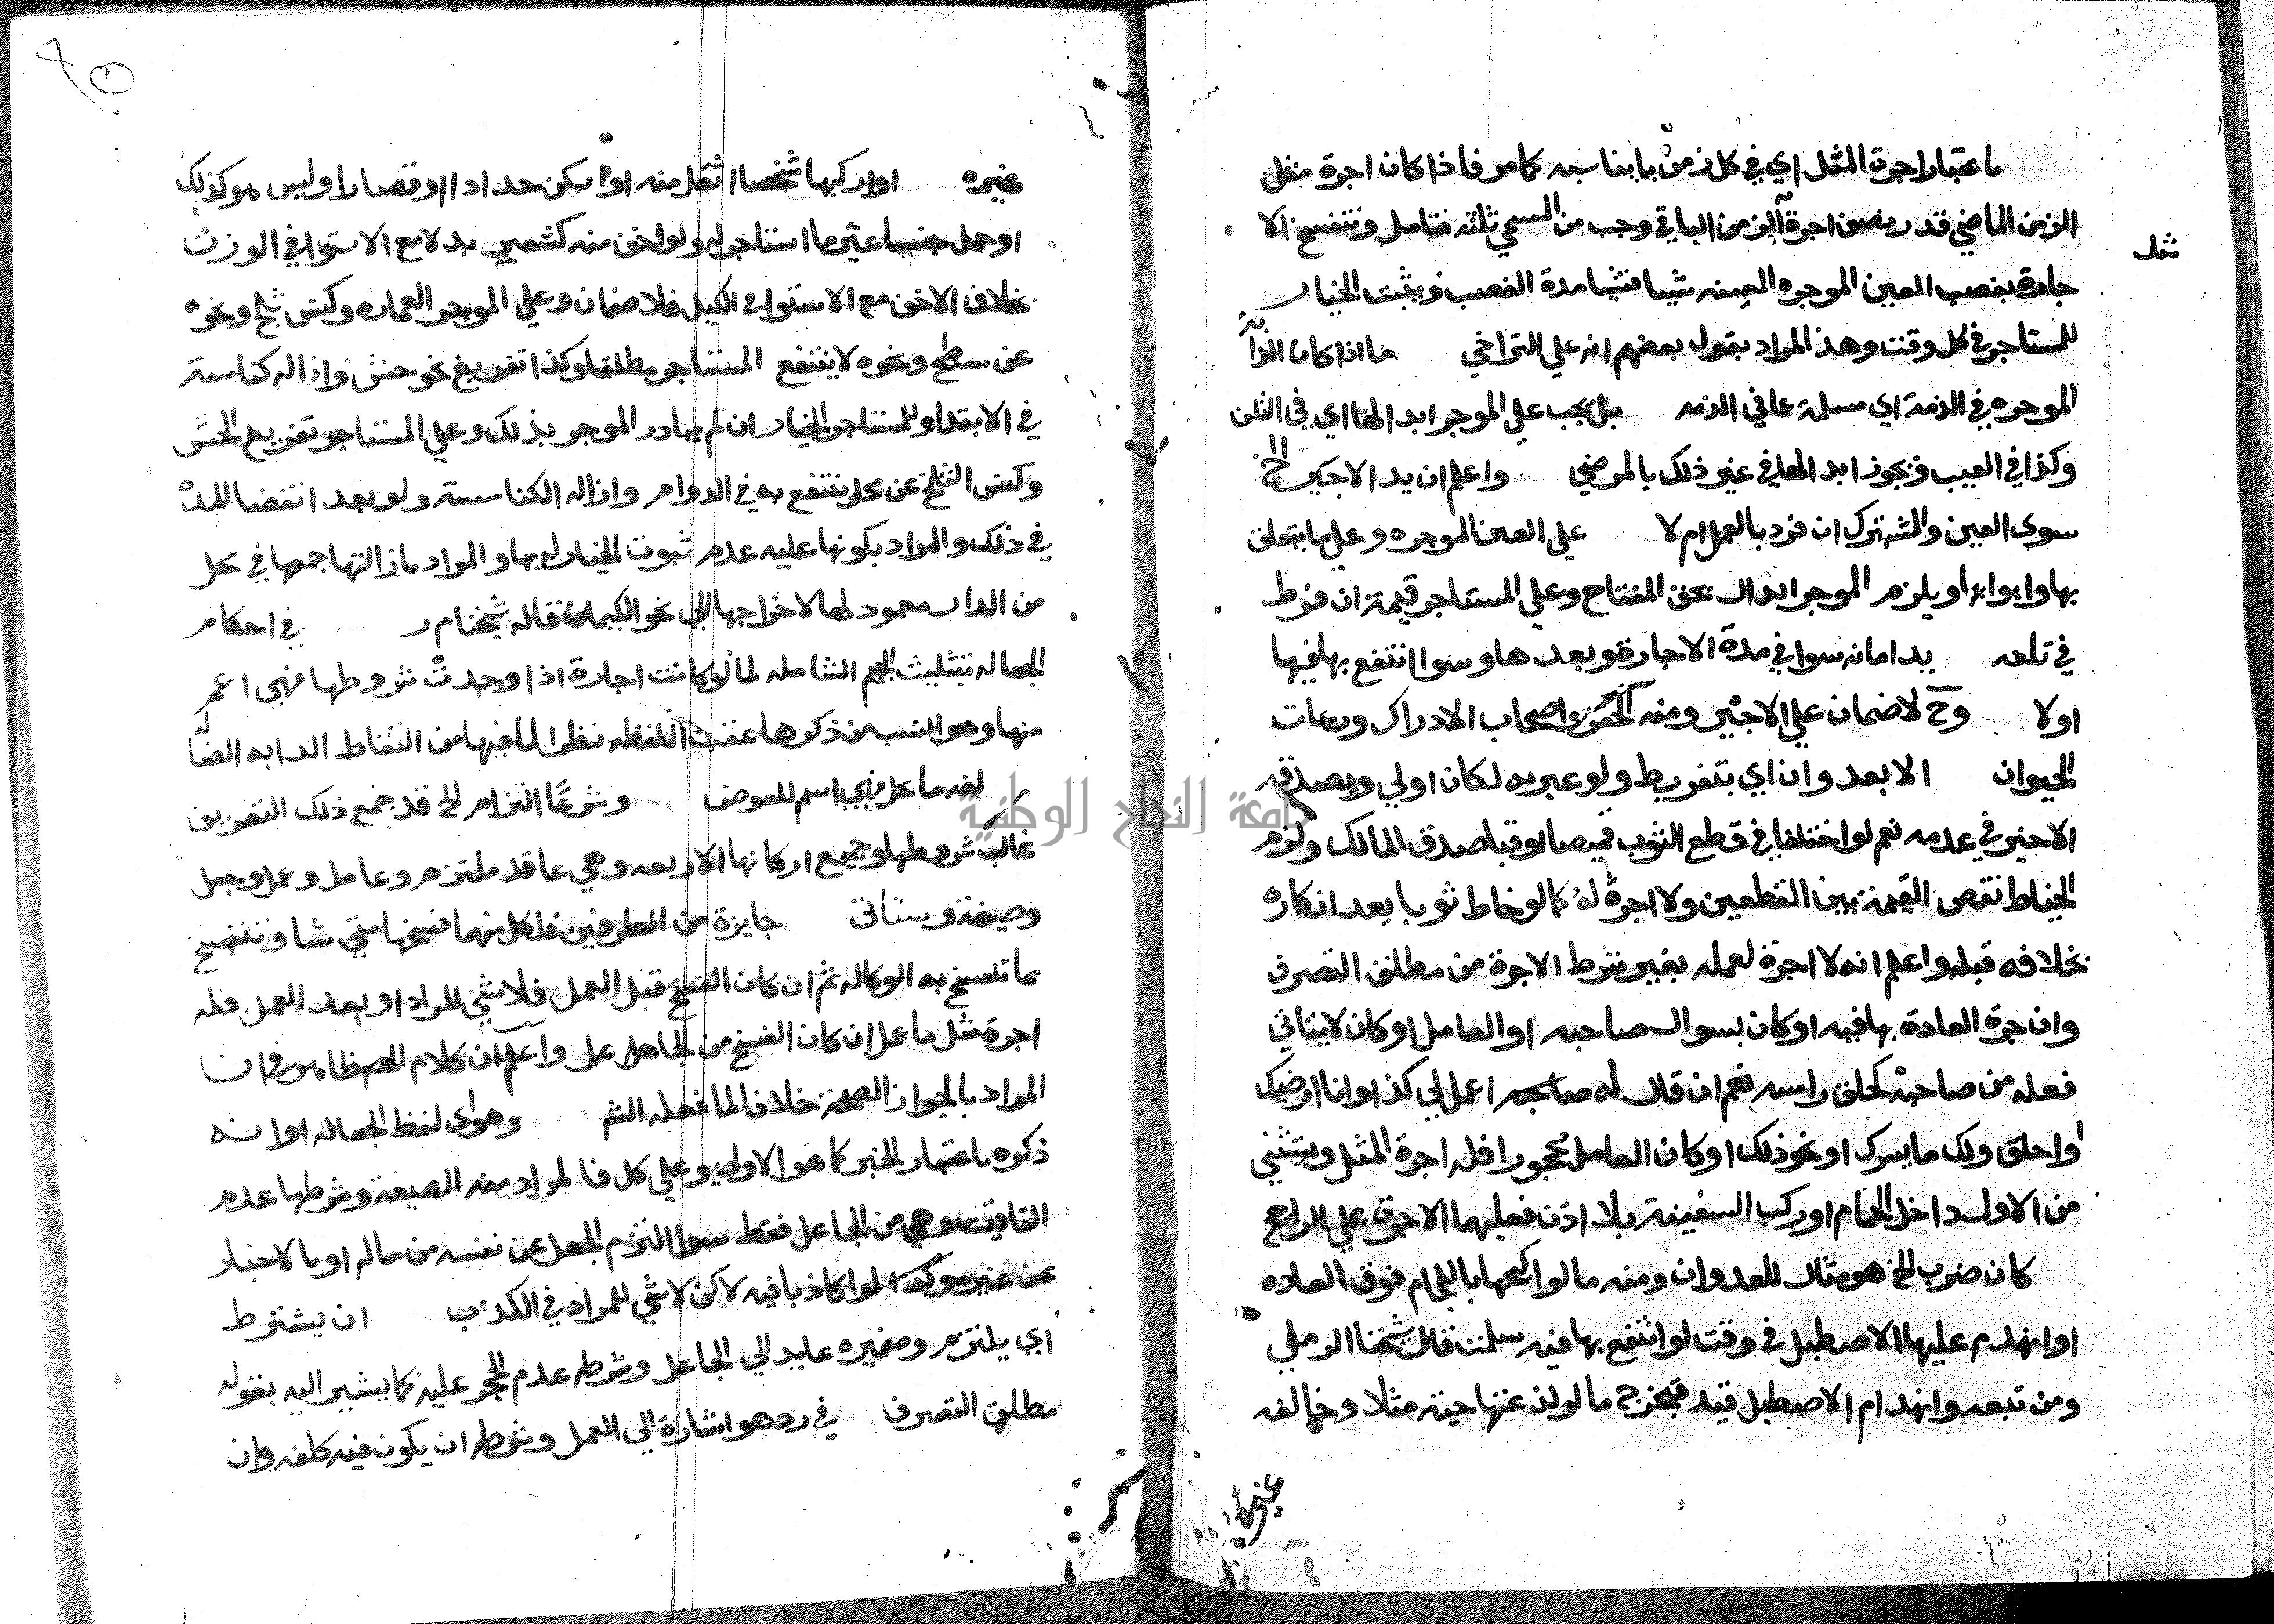 باعتبار اجرة المثل اي في كل زمن بما يناسبه كما مر فاذا كان اجرة مثل
الزمن الماضي قدر نصف اجرة الزمن الباقي وجب من المسمي ثلثه فتامل وتنفسخ الا
مثل
جارة بغصب العين الموجره المعينه شيا فشيا مدة الغصب ويثبت الخيار
للمستاجر في كل وقت وهذ المراد بقول بعضهم انه علي التراخي ما اذا كانا الدآ
الموجره في الذمة اي مسلمة عما في الذمه بل يجب علي الموجر ابدالها اي في التلف
وكذا في العيب ويجوز ابدالها في غير ذلك بالمرضي واعلم ان يد الاجير الخ
سوى العين والمشترك انفرد بالعمل ام لا علي العين الموجره وعلي ما يتعلق
بها وابوابها ويلزم الموجر ابدال نحو المفتاح وعلي المستاجر قيمة ان فرط
في تلفه يد امانه سوا في مدة الاجارة وبعدها وسوا انتفع بها فيها
اولا وح لا ضمان علي الاجير ومنه الخفر واصحاب الادراك ورعات
الحيوان الا بعدوان اي بتفريط ولو عبر به لكان اولي ويصدق
الاجير في عدمه نعم لو اختلفا في قطع الثوب قميصا او قبا صدق المالك ولزم
الخياط نقص القيمة بين القطعين ولا اجرة له كما لو خاط ثوبا بعد انكاره
بخلافه قبله واعلم انه لا اجرة لعمله بغير شرط الاجرة من مطلق التصرف
وان جرة العادة بها فيه او كان بسوال صاحبه او العامل او كان لا يتاتي
فعله من صاحبه كحلق راسه نعم ان قال له صاحبه اعمل لي كذا وانا ارضيك
او احلق ولك ما يسرك او نحو ذلك او كان العامل محجورا فله اجرة المثل ويستثني
من الاول داخل الحمام او ركب السفينة بلا اذن فعليهما الاجرة علي الراجح
كان ضرب الخ هو مثال للعدوان ومنه ما لو اكبحها باللجام فوق العاده
او انهدم عليها الاصطبل في وقت لو انتفع بها فيه سلمت قال شيخنا الرملي
ومن تبعه وانهدام الاصطبل قيد فيخرج ما لو لدغتها حية مثلا وخالفه
غيره
غيره او اركبها شخصا اثقل منه او اسكن حدادا او قصارا وليس هو كذلك
او حمل جنسا غير ما استاجر له ولو اخف منه كشعير بدلا مع الاستوا في الوزن
خلاف الاخف مع الاستوا في الكيل فلا ضمان وعلي الموجر العماره وكنس ثلج ونحوه
عن سطح ونحوه لا ينتفع المستاجر مطلقا وكذا تفريغ نحو حش وازاله كناسة
في الابتدا وللمستاجر الخيار ان لم يبادر الموجر بذلك وعلي المستاجر تفريغ الحش
وكنس الثلج عن محل ينتفع به في الدوام وازاله الكناسة ولو بعد انقضا المدة
في ذلك والمراد بكونها عليه عدم ثبوت الخيار له بها والمراد بازالتها جمعها في محل
من الدار معمود لها لاخراجها الي نحو الكيمان قاله شيخنا م ر في احكام
الجعاله بتثليث الجيم الشامله لما لو كانت اجارة اذا وجدت شروطها فهي اعم
منها وهو انسب من ذكرها عقب اللقطه نظرا لما فيها من التقاط الدابه الضآ
لغه ما جعل فهي اسم للعوض وشرعا التزام الخ قد جمع ذلك التعريف
غالب شروطها وجميع اركانها الاربعه وهي عاقد ملتزم وعامل وعمل وجعل
وصيغة وستاتي جايزة من الطرفين فلكل منهما فسخها متي شا وتنفسخ
بما تنفسخ به الوكاله ثم ان كان الفسخ قبل العمل فلا شي للراد او بعد العمل فله
اجرة مثل ما عمل ان كان الفسخ من الجاعل واعلم ان كلام المص ظاهر في ان
المراد بالجواز الصحة خلافا لما فعله الش وهو اي لفظ الجعاله او انه
ذكره باعتبار الخبر كما هو الاولي وعلي كل فالمراد منه الصيغة وشرطها عدم
التاقيت وهي من الجاعل فقط سوا التزم الجعل عن نفسه من ماله او بالاخبار
عن غيره وكذا لو اكاذبا فيه لاكن لا شي للراد في الكذب ان يشترط
اي يلتزم وضميره عايد الي الجاعل وشرطه عدم الحجر عليه كما يشير اليه بقوله
مطلق التصرف في رد هو اشارة الي العمل وشرطه ان يكون فيه كلفه وان
جامعة النجاح الوطنية